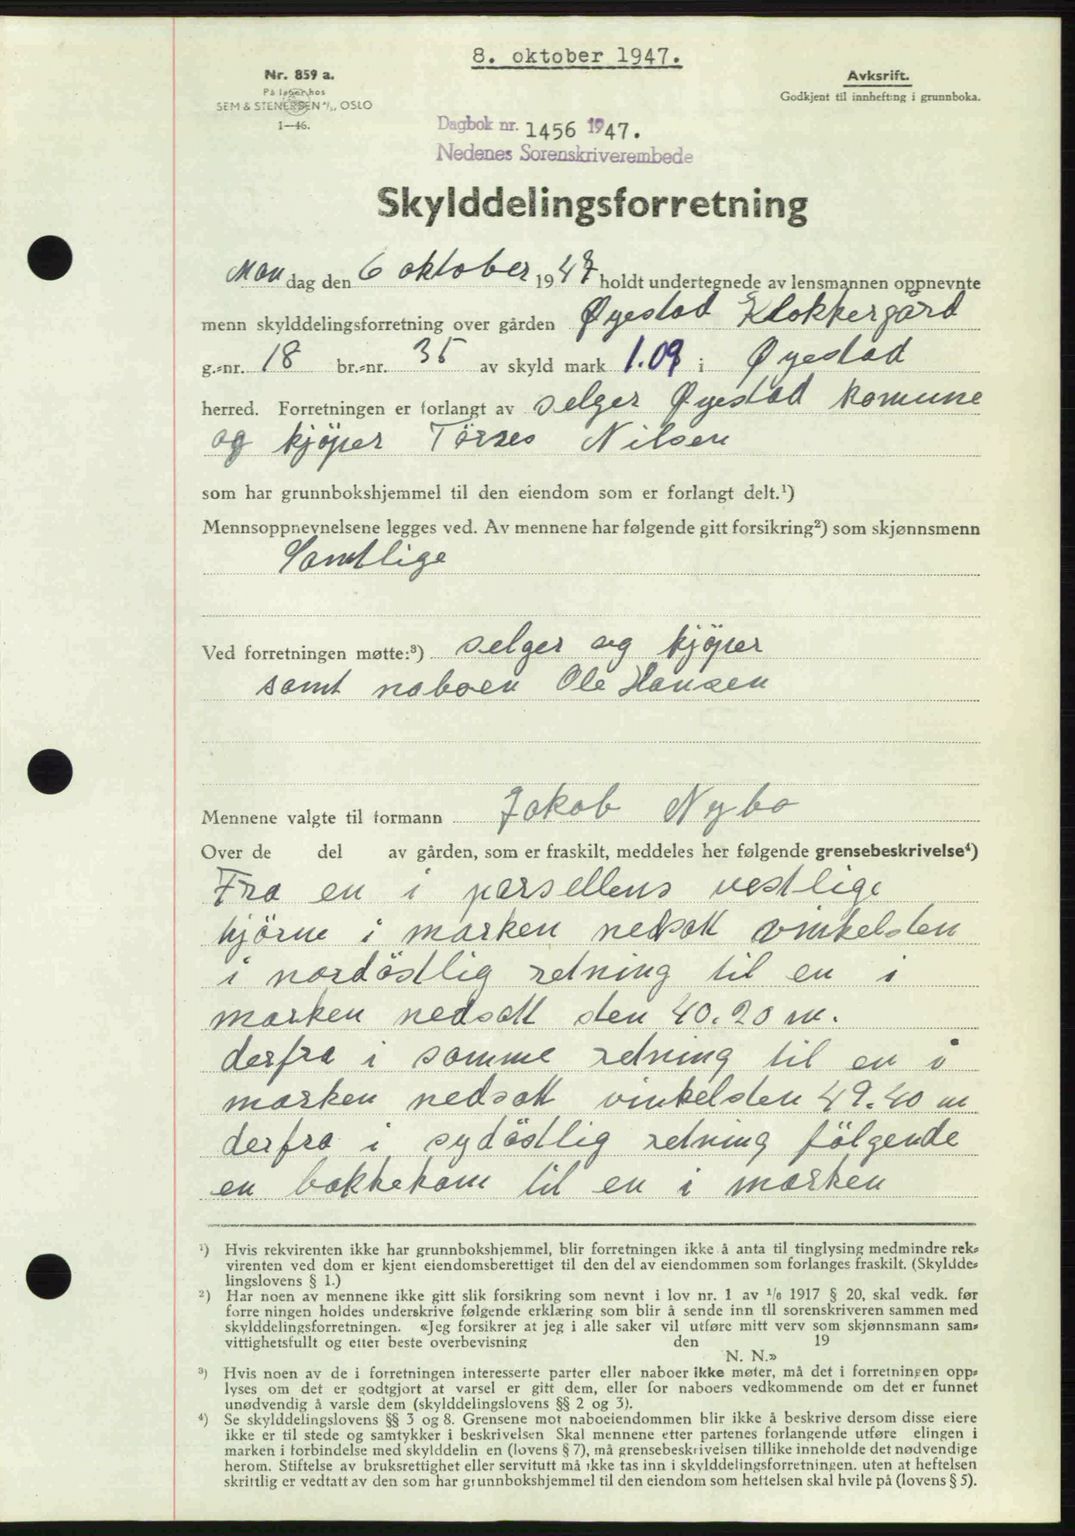 8. oktober 1947.
Nr. 859 a.
På lager hos
SEM & STENERSEN A/S, OSLO
1—46.
Avksrift.
Godkjent til innhefting i grunnboka.
Dagbok nr. 1456 1947.
Nedenes Sorenskriverembede
Skylddelingsforretning
Mandag den 6 oktober 1947 holdt undertegnede av lensmannen oppnevnte
menn skylddelingsforretning over gården Øyestad Klokkergård
g.=nr. 18 br.=nr. 35 av skyld mark 1.09 i Øyestad
herred. Forretningen er forlangt av selger Øyestad komune
og kjöper Törres Nilsen
som har grunnbokshjemmel til den eiendom som er forlangt delt.¹)
Mennsoppnevnelsene legges ved. Av mennene har følgende gitt forsikring²) som skjønnsmenn
Samtlige
Ved forretningen møtte:³) selger og kjöper
samt naboen Ole Hansen
Mennene valgte til formann Jakob Nybo
Over de del av gården, som er fraskilt, meddeles her følgende grensebeskrivelse⁴)
Fra en i parsellens vestlige
hjörne i marken nedsatt vinkelsten
i nordöstlig retning til en i
marken nedsatt sten 40.20 m.
derfra i samme retning til en i
marken nedsatt vinkelsten 49.40 m
derfra i sydöstlig retning fölgende
en bakkekam til en i marken
¹) Hvis rekvirenten ikke har grunnbokshjemmel, blir forretningen ikke å anta til tinglysing medmindre rek=
virenten ved dom er kjent eiendomsberettiget til den del av eiendommen som forlanges fraskilt. (Skyldde=
lingslovens § 1.)
²) Har noen av mennene ikke gitt slik forsikring som nevnt i lov nr. 1 av 1/6 1917 § 20, skal vedk. før
forre ningen holdes underskrive følgende erklæring som blir å sende inn til sorenskriveren sammen med
skylddelingsforretningen. «Jeg forsikrer at jeg i alle saker vil utføre mitt verv som skjønnsmann sam=
vittighetsfullt og etter beste overbevisning den 19
N. N.»
³) Hvis noen av de i forretningen interesserte parter eller naboer ikke møter, må det i forretningen opp=
lyses om det er godtgjort at varsel er gitt dem, eller for naboers vedkommende om det er funnet
unødvendig å varsle dem (skylddelingslovens §§ 2 og 3).
⁴) Se skylddelingslovens §§ 3 og 8. Grensene mot naboeiendommen blir ikke å beskrive dersom disse eiere
ikke er til stede og samtykker i beskrivelsen Skal mennene etter partenes forlangende utføre elingen i
marken i forbindelse med skylddelin en (lovens § 7), må grensebeskrivelsen tillike inneholde det nødvendige
herom. Stiftelse av bruksrettighet eller servitutt må ikke tas inn i skylddelingsforretningen. uten at heftelsen
skrittlig er vedtatt av den som har grunnbokshjemmel til den eiendom som heftelsen skal hvile på (lovens § 5).